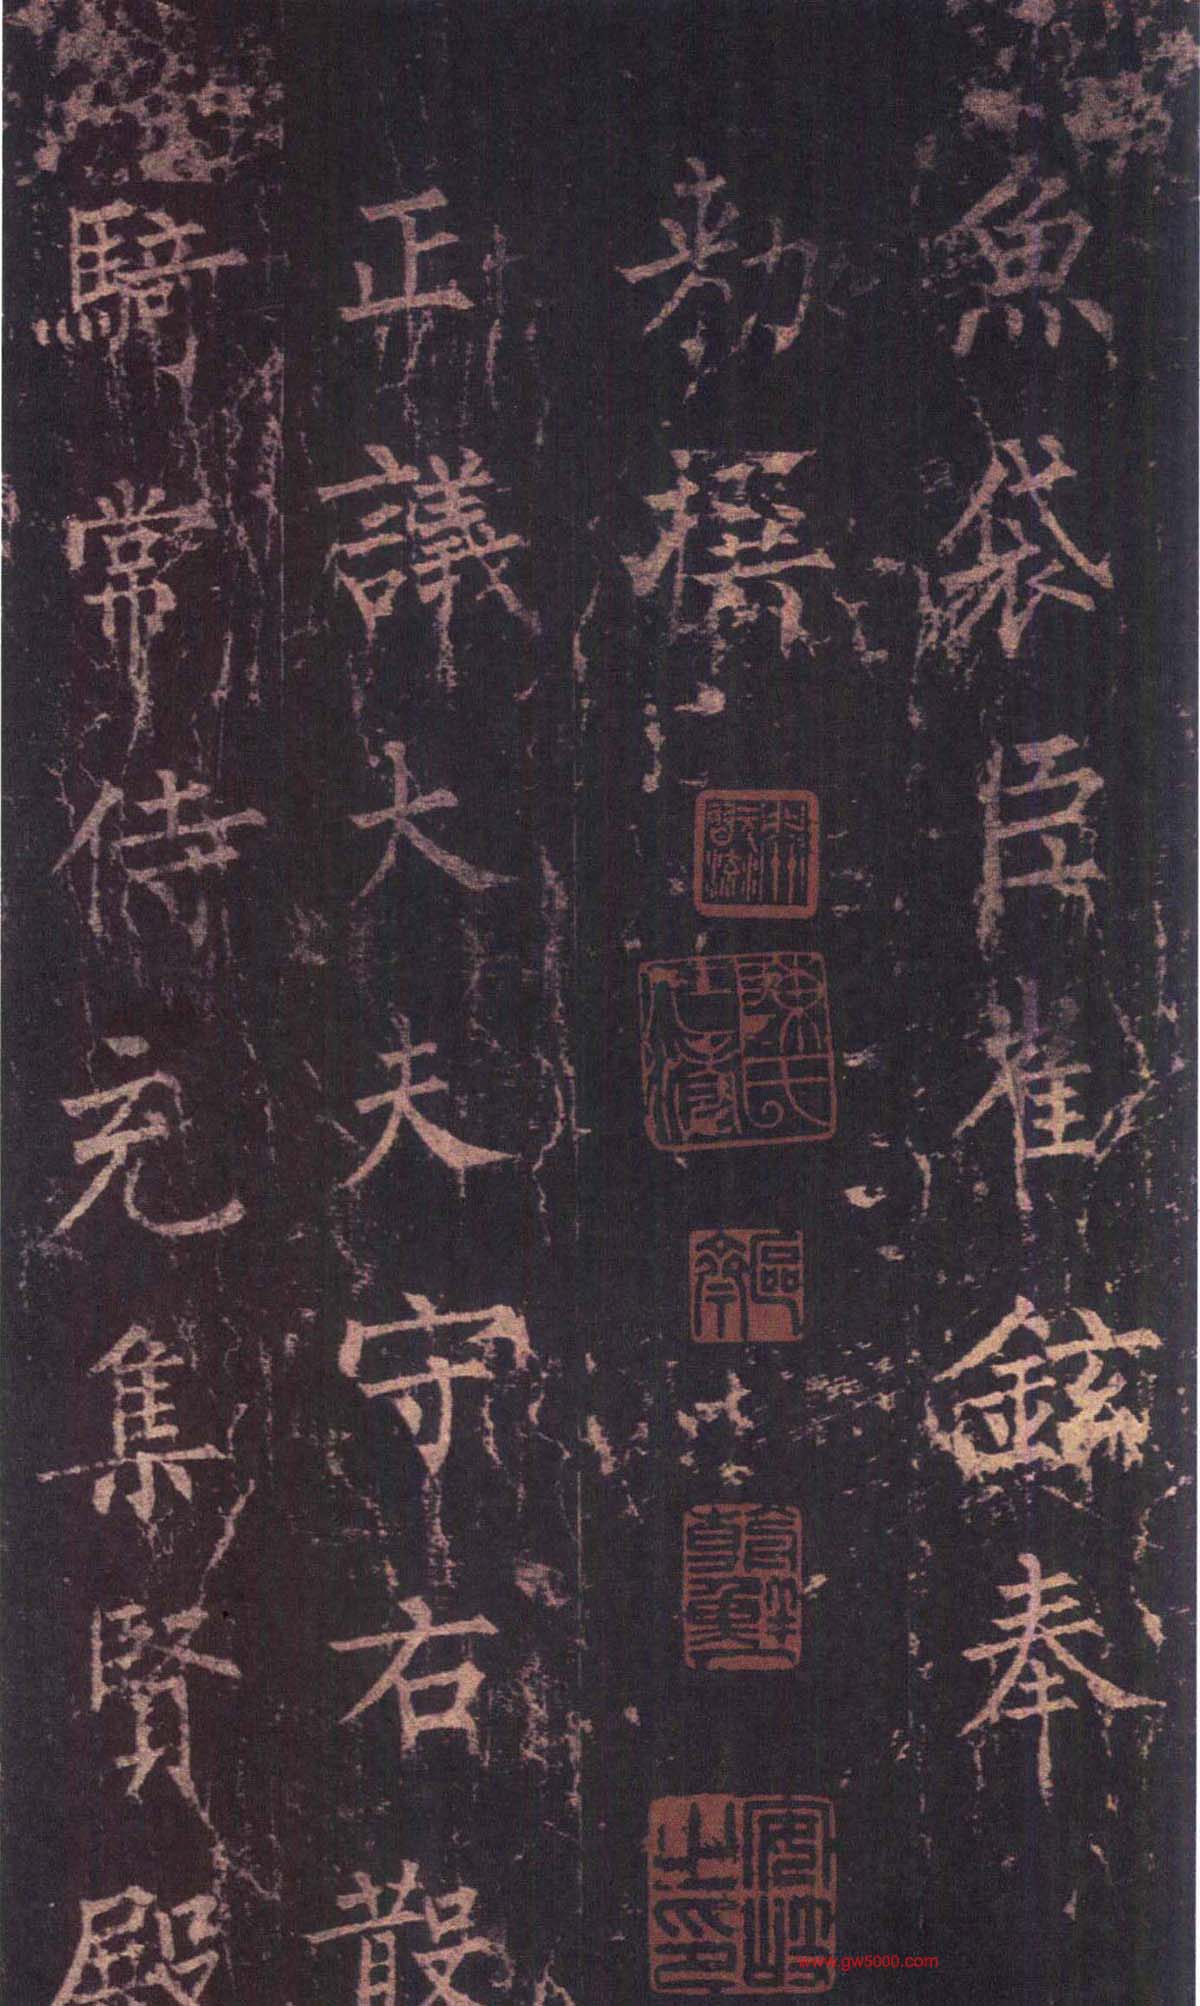 魚袋臣崔鉉奉
勑撰
正議大夫守右散
騎常侍充集賢殿
www.gw5000.com